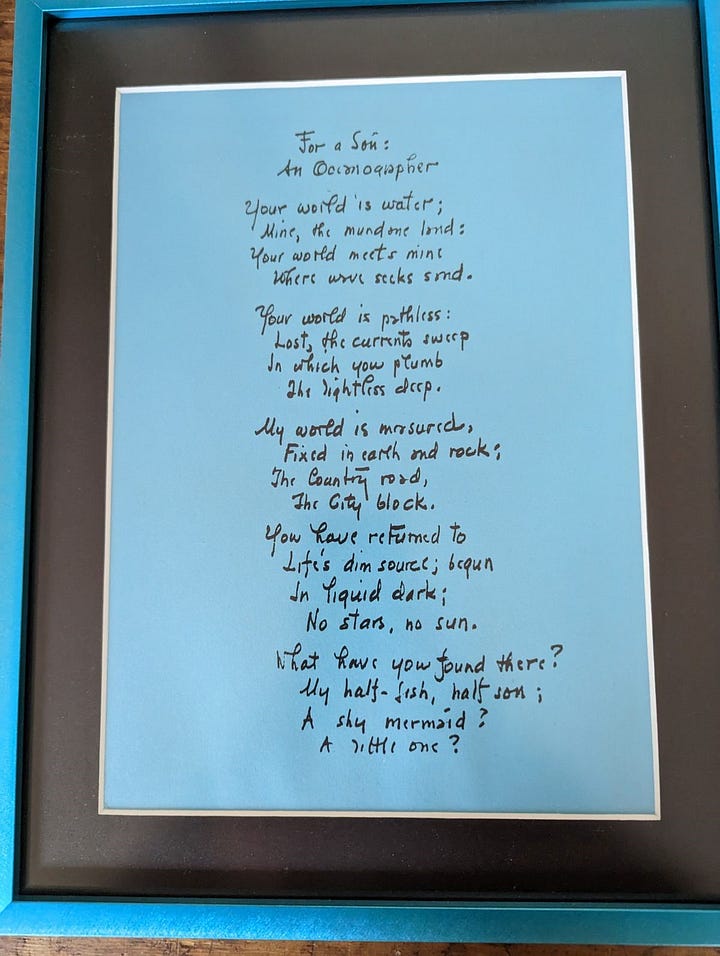 For a Son:
An Oceanographer
Your world is water;
Mine, the mundane land:
Your world meets mine
Where wave seeks sand.
Your world is pathless:
Lost, the currents sweep
In which you plumb
The lightless deep.
My world is measured,
Fixed in earth and rock;
The Country road,
The City block.
You have returned to
Life's dim source; begun
In liquid dark;
No stars, no sun.
What have you found there?
My half-fish, half son;
A shy mermaid?
A little one?